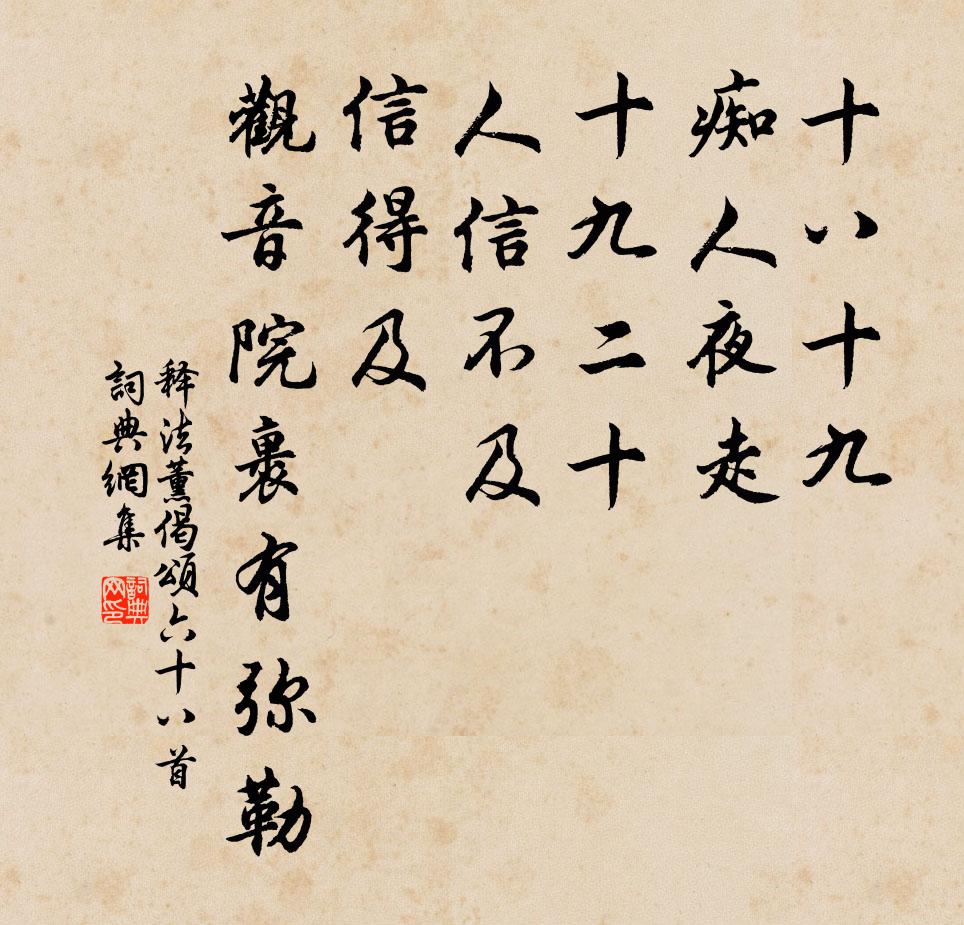 十八十九
痴人夜走
十九二十
人信不及
信得及
觀音院裹有弥勒
释法薰偈頌六十八首
詞典網集
詞典網印